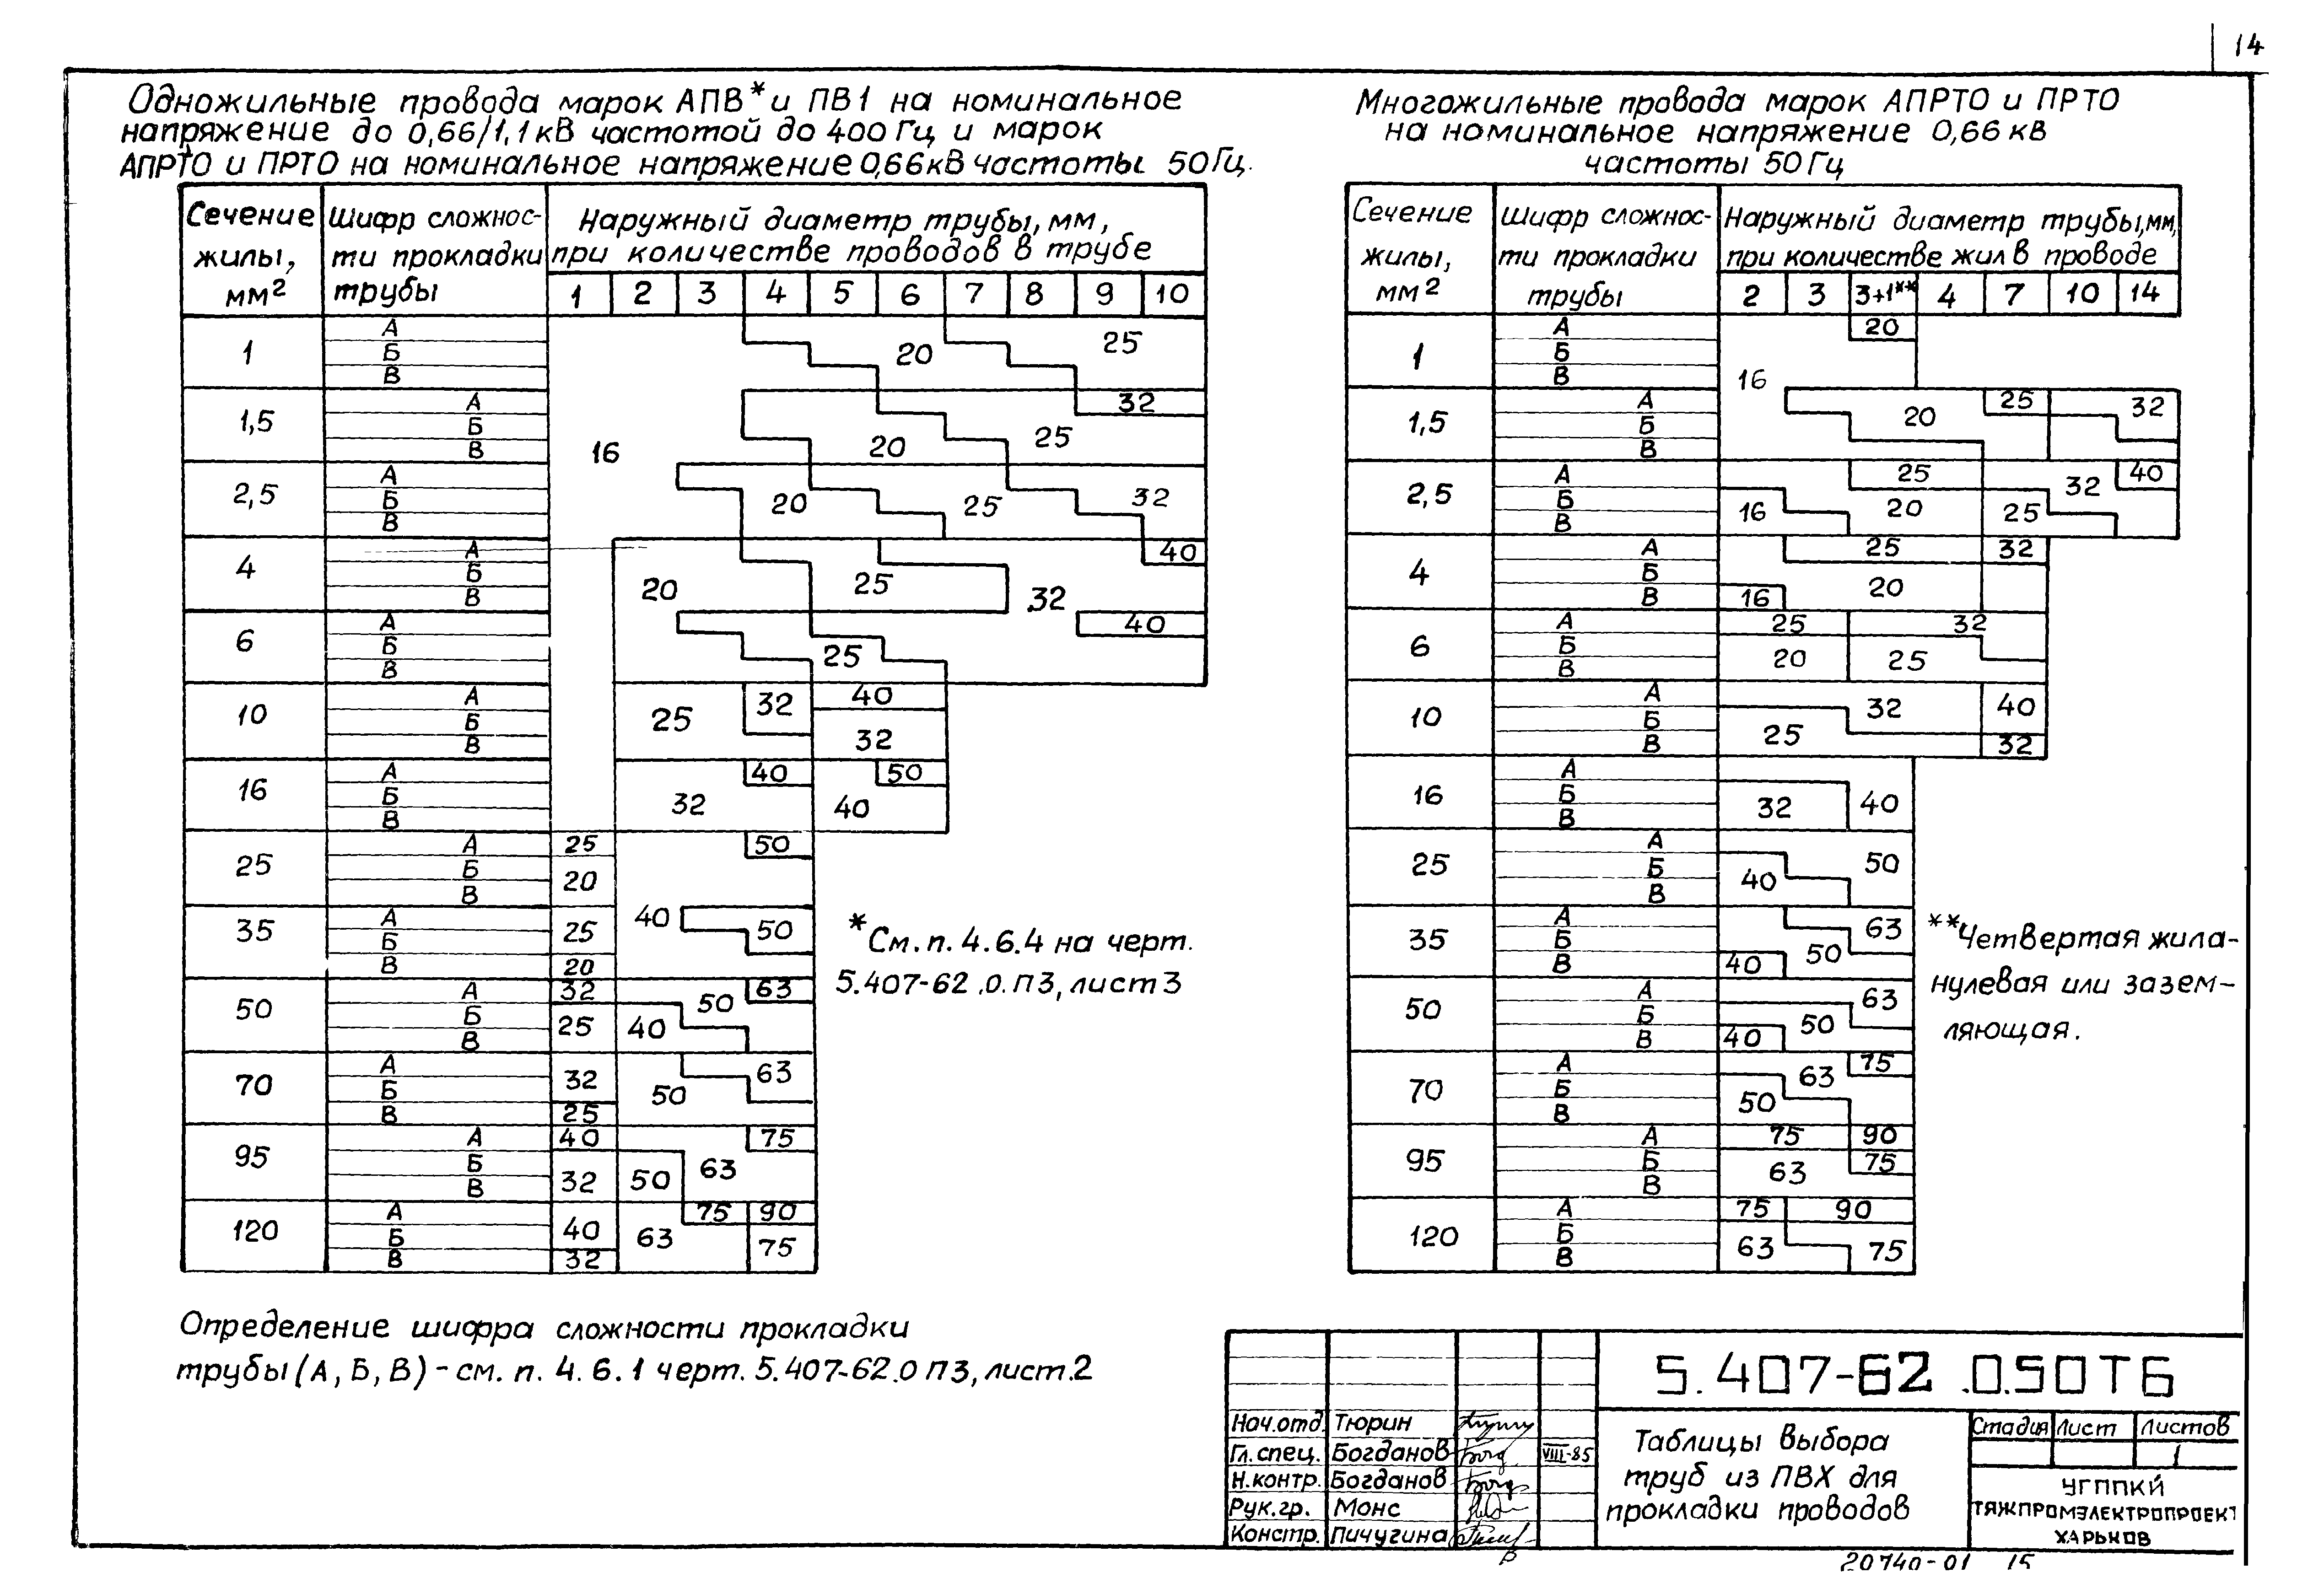 14
Одножильные провода марок АПВ* и ПВ1 на номинальное
напряжение до 0,66/1,1кВ частотой до 400Гц и марок
АПРТО и ПРТО на номинальное напряжение 0,66кВ частоты 50Гц.
Сечение жилы, мм2
Шифр сложнос-
ти прокладки
трубы
Наружный диаметр трубы, мм,
при количестве проводов в трубе
1 2 3 4 5 6 7 8 9 10
1 А
Б 20 25
В
1,5 А 32
Б 16 20 25
В
2,5 А
Б 20 25 32
В
4 А 40
Б 20 25 32
В
6 А 40
Б 25
В
10 А 32 40
Б 25
В 32
16 А 40 50
Б 32 40
В
25 А 25 50
Б 20
В
35 А 40
Б 25 50
В 20
50 А 32 50 63
Б 25 40
В
70 А 32 63
Б 50
В 25
95 А 40 75
Б 32 50 63
В
120 А 40 75 90
Б 63 75
В 32
*См. п. 4.6.4 на черт.
5.407-62 .0. П3, лист 3
Определение шифра сложности прокладки
трубы (А, Б, В) - см. п. 4.6.1 черт. 5.407-62.0 П3, лист.2
Многожильные провода марок АПРТО и ПРТО
на номинальное напряжение 0,66 кВ
частоты 50Гц
Сечение жилы, мм2
Шифр сложнос-
ти прокладки
трубы
Наружный диаметр трубы, мм,
при количестве жил в проводе
2 3 3+1** 4 7 10 14
1 А 20
Б
В 16
1,5 А 25 32
Б 20
В
2,5 А 25 32 40
Б 16 20 25
В
4 А 25 32
Б 20
В 16
6 А 25 32
Б 20 25
В
10 А 32 40
Б 25
В 32
16 А
Б 32 40
В
25 А 50
Б 40
В
35 А 63
Б 50
В 40
50 А 63
Б 50
В 40
70 А 63 75
Б 50
В
95 А 75 90
Б 63 75
В
120 А 75 90
Б 63 75
В
**Четвертая жила-
нулевая или зазем-
ляющая.
5.407-62 .0.50ТБ
Нач.отд. Тюрин
Гл.спец. Богданов VIII-85
Н.контр. Богданов
Рук.гр. Монс
Констр. Пичугина
Таблицы выбора
труб из ПВХ для
прокладки проводов
Стадия Лист Листов
1
УГППКИ
ТЯЖПРОМЭЛЕКТРОПРОЕКТ
ХАРЬКОВ
20740-01 15